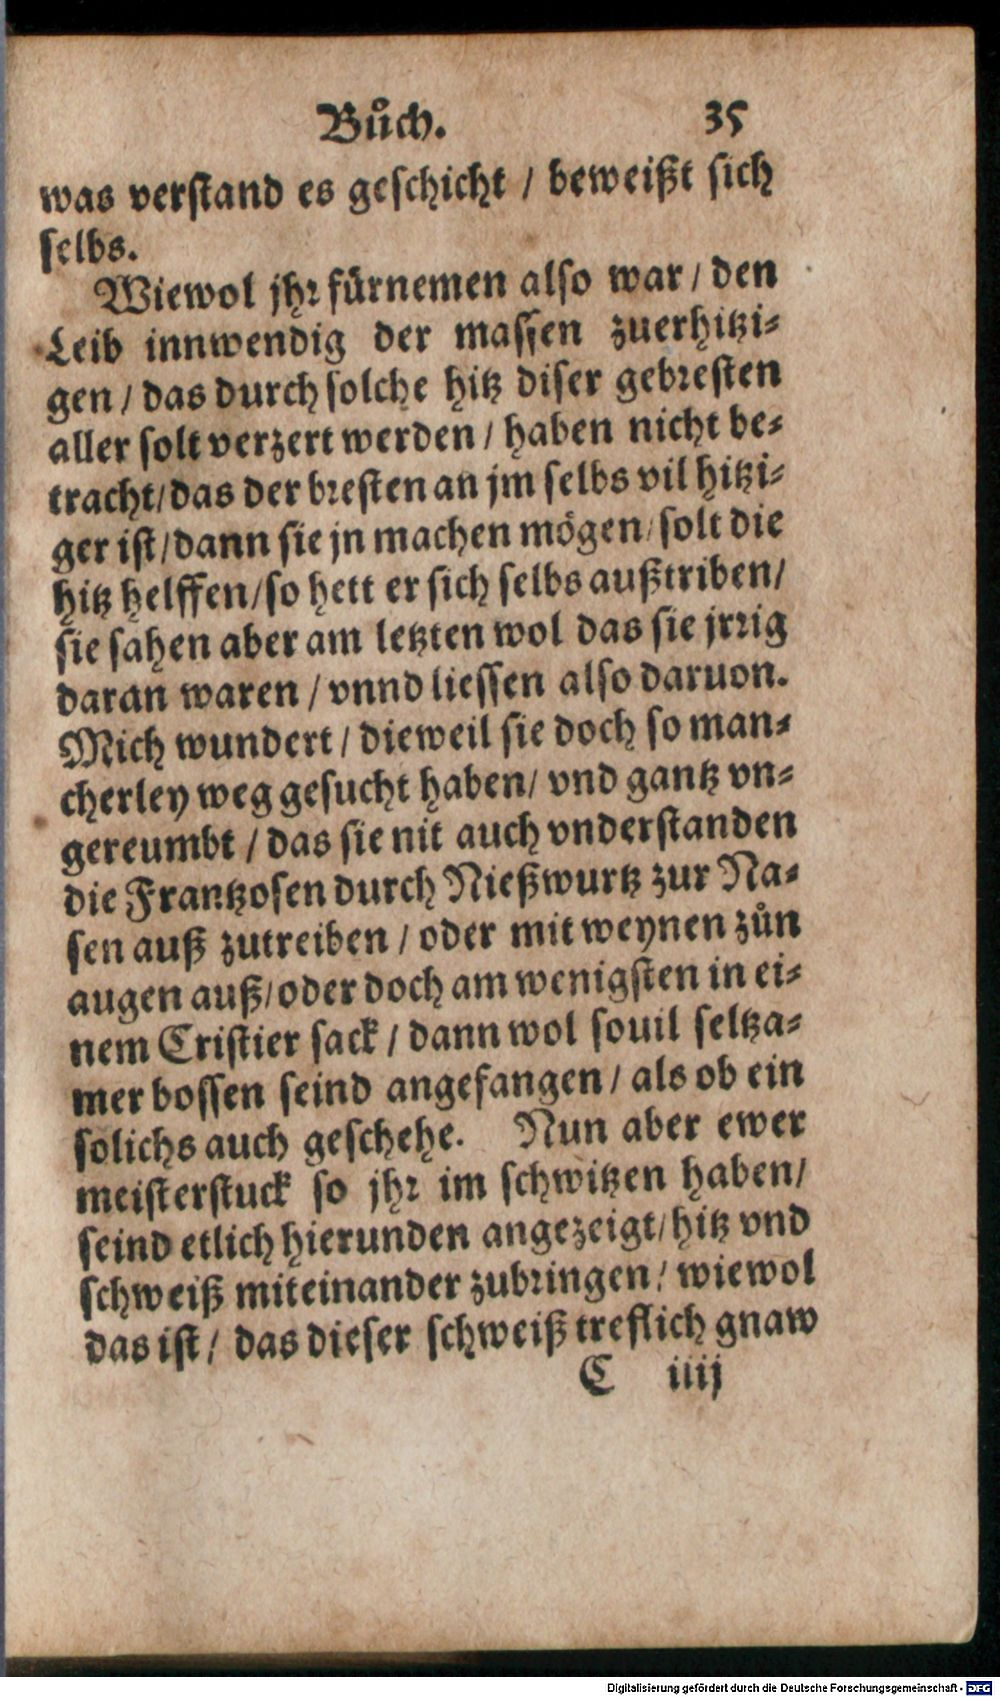 Bůch. 35
was verstand es geschicht / beweißt sich
selbs.
Wiewol jhr fürnemen also war / den
Leib innwendig der massen zuerhitzi-
gen / das durch solche hitz diser gebresten
aller solt verzert werden / haben nicht be-
tracht / das der bresten an jm selbs vil hitzi-
ger ist / dann sie jn machen mögen / solt die
hitz helffen / so hett er sich selbs außtriben /
sie sahen aber am letzten wol das sie jrrig
daran waren / vnnd liessen also daruon.
Mich wundert / dieweil sie doch so man-
cherley weg gesucht haben / vnd gantz vn-
gereumbt / das sie nit auch vnderstanden
die Frantzosen durch Nießwurtz zur Na-
sen auß zutreiben / oder mit weynen zůn
augen auß / oder doch am wenigsten in ei-
nem Cristier sack / dann wol souil seltza-
mer bossen seind angefangen / als ob ein
solichs auch geschehe. Nun aber ewer
meisterstuck so jhr im schwitzen haben /
seind etlich hierunden angezeigt / hitz vnd
schweiß miteinander zubringen / wiewol
das ist / das dieser schweiß treflich gnaw
C iiij
Digitalisierung gefördert durch die Deutsche Forschungsgemeinschaft - DFG